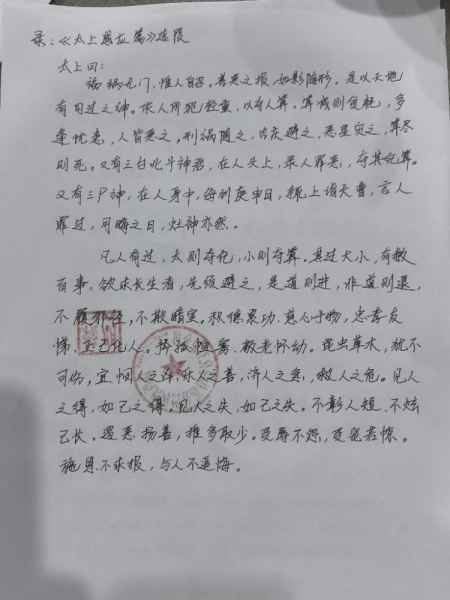 录:《太上感应篇》选段
太上曰:
祸福无门,惟人自召,善恶之报,如影随形,是以天地
有司过之神,依人所犯轻重,以夺人算,算减则贫耗,多
逢忧患,人皆恶之,刑祸随之,吉庆避之,恶星灾之,算尽
则死。又有三台北斗神君,在人头上,录人罪恶,夺其纪算。
又有三尸神,在人身中,每到庚申日,辄上诣天曹,言人
罪过,月晦之日,灶神亦然。
凡人有过,大则夺纪,小则夺算。其过大小,有数
百事,欲求长生者,先须避之,是道则进,非道则退,
不履邪径,不欺暗室,积德累功,慈心于物,忠孝友
悌,正己化人。矜孤恤寡,敬老怀幼。昆虫草木,犹不
可伤,宜悯人之凶,乐人之善,济人之急,救人之危。见人
之得,如己之得,见人之失,如己之失。不彰人短,不炫
己长。遏恶扬善,推多取少。受辱不怨,受宠若惊。
施恩不求报,与人不追悔。